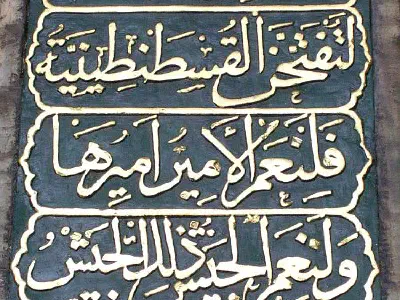 لَتُفْتَحَنَّ القُسْطَنْطِينِيَّة
فَلَنِعْمَ الأَمِيرُ أَمِيرُهَا
وَلَنِعْمَ الجَيْشُ ذَلِكَ الجَيْشُ